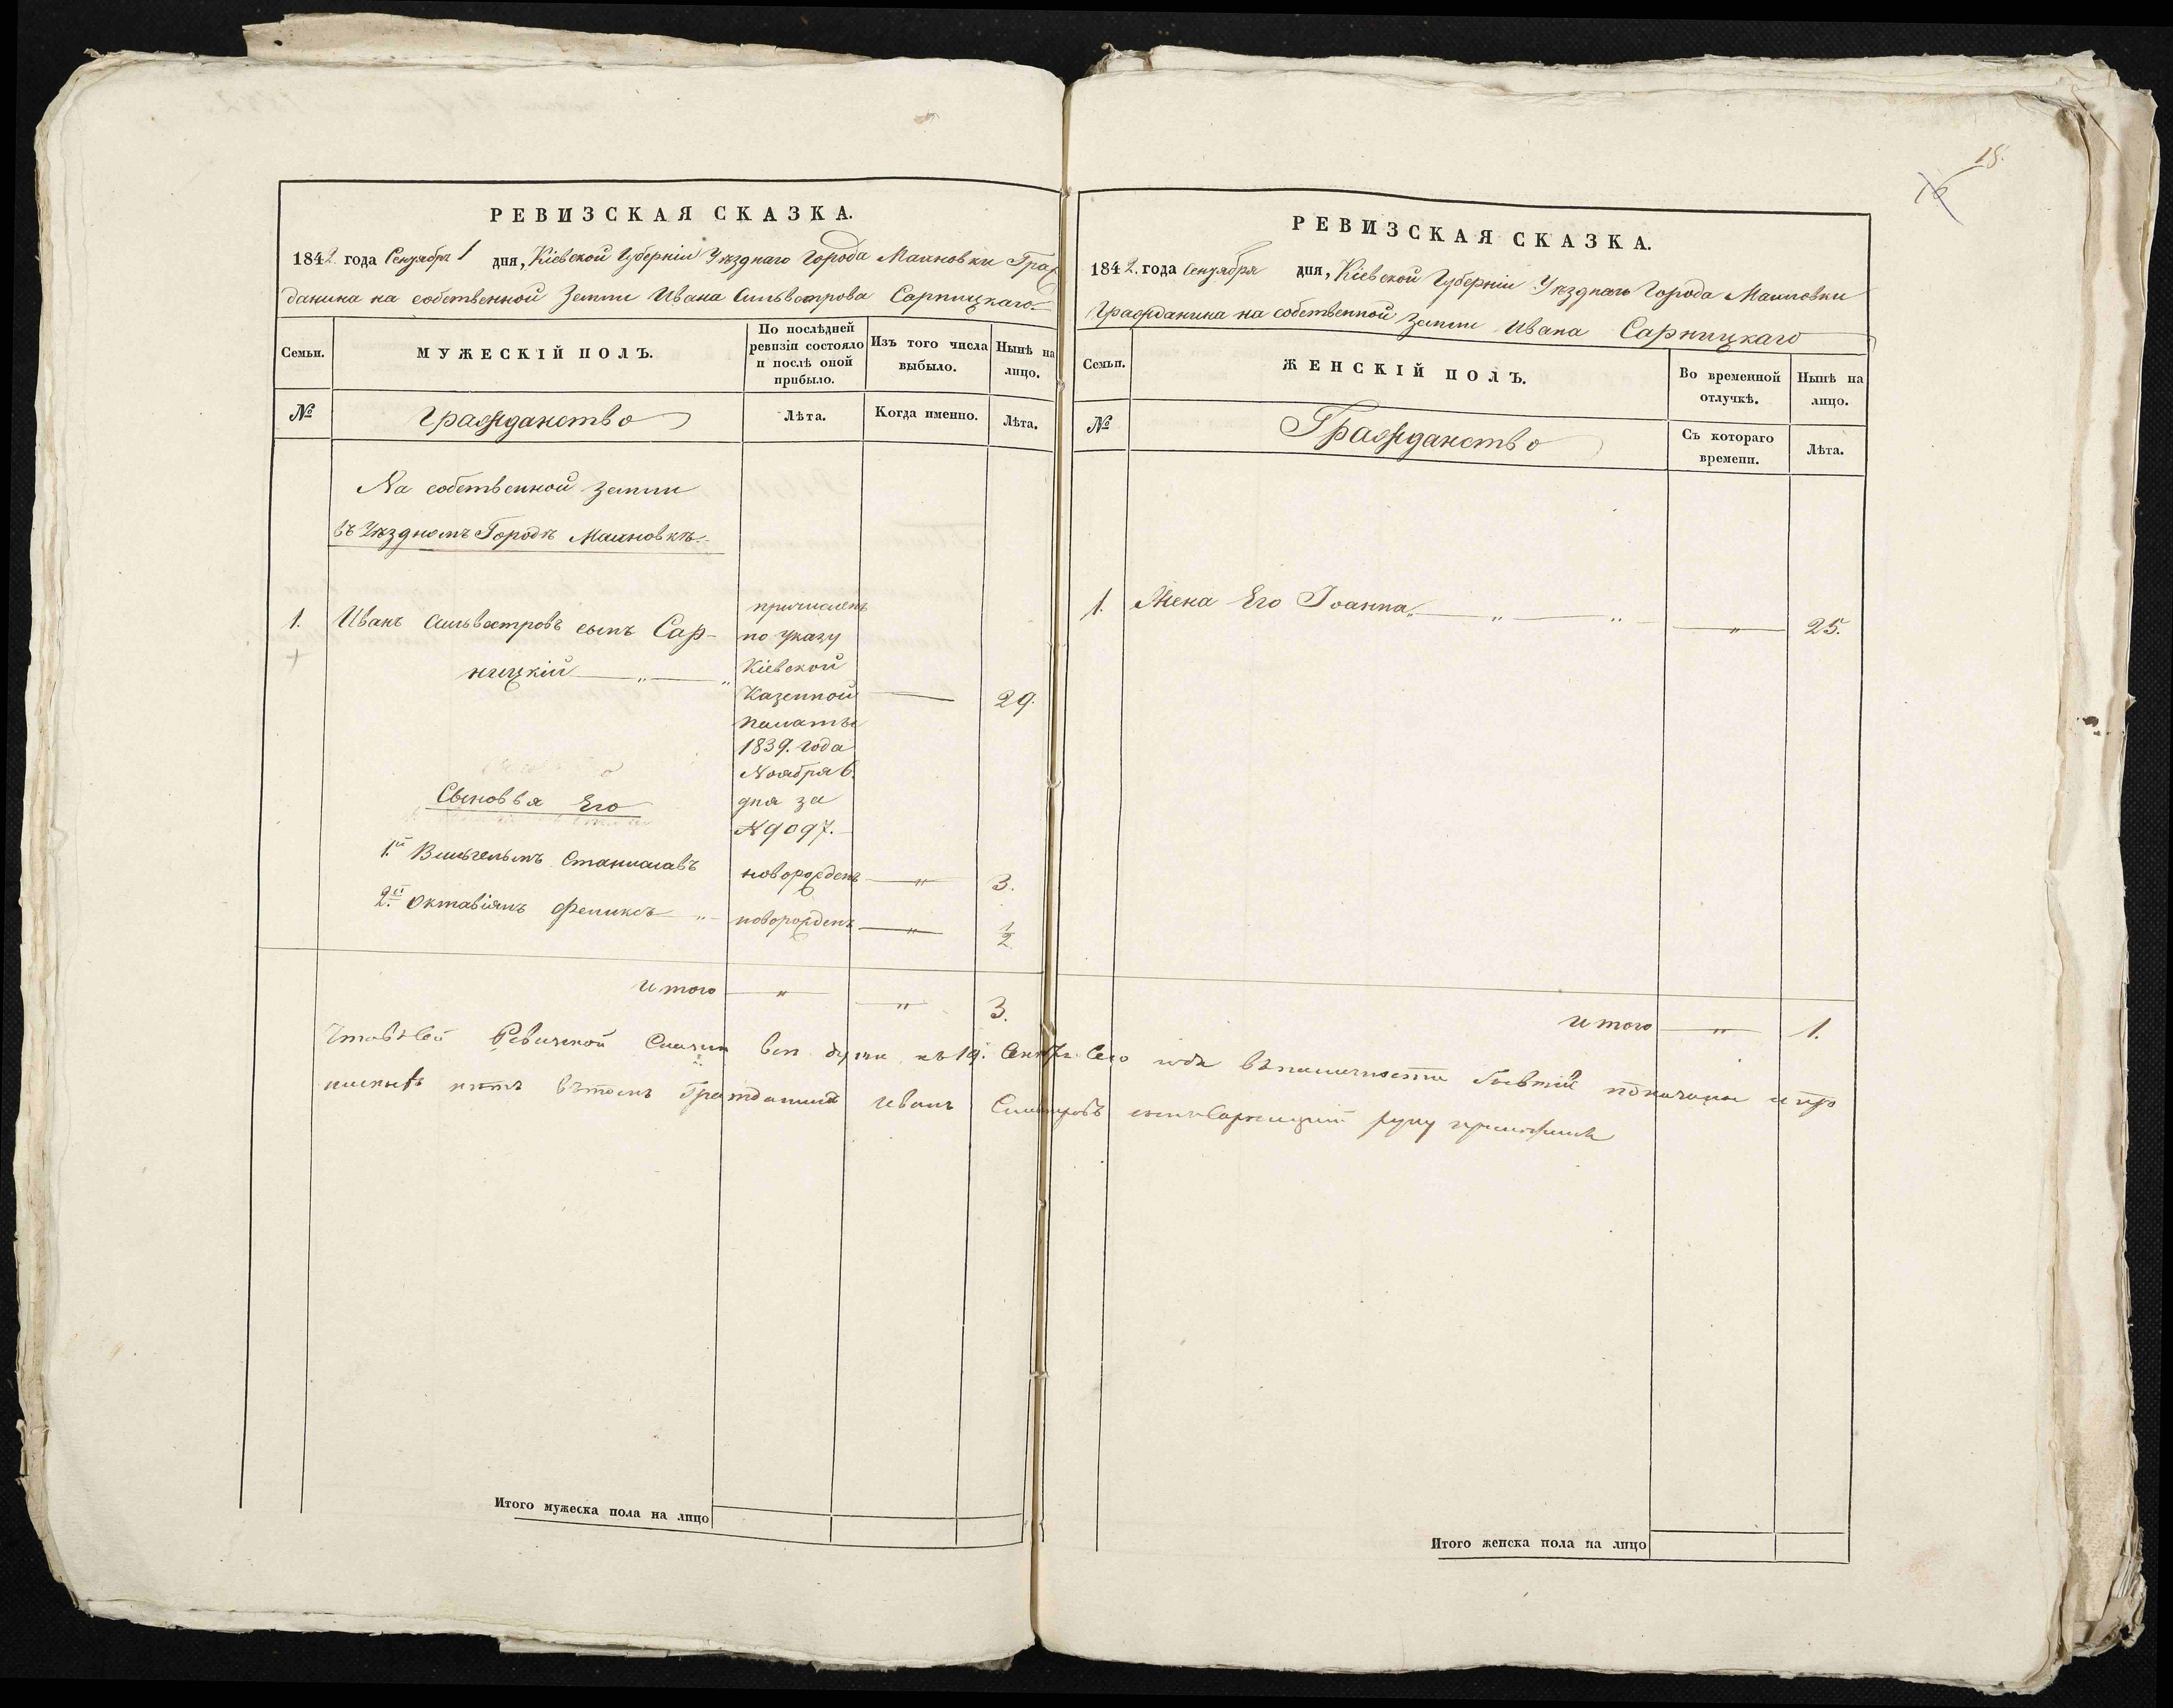 18.
16
РЕВИЗСКАЯ СКАЗКА.
1842. года Сентября 1 дня, Кіевской Губерніи Уѣзднаго Города Махновки Граж
данина на собственной Земли Ивана Сильвестрова Сарницкаго.
Семьи.
МУЖЕСКІЙ ПОЛЪ.
По послѣдней ревизіи состояло и послѣ оной прибыло.
Изъ того числа выбыло.
Нынѣ на лицо.
№
Гражданство
Лѣта.
Когда именно.
Лѣта.
На собственной Земли
въ Уѣздномъ Городѣ Махновкѣ.
1. Иванъ Сильвестровъ сынъ Сар-
ницкій
причисленъ
по указу
Кіевской
Казенной
Палаты
1839. года
Ноября 6.
дня за
№ 9097.
29.
Сыновья Его
1.й Вильгельмъ Станиславъ новорожденъ 3.
2.й Октавіянъ Феликсъ новорожденъ ½
Итого 3.
РЕВИЗСКАЯ СКАЗКА.
1842. года Сентября дня, Кіевской Губерніи Уѣзднаго Города Махновки
Гражданина на собственной Земли Ивана Сарницкаго
Семьи.
ЖЕНСКІЙ ПОЛЪ.
Во временной отлучкѣ.
Нынѣ на лицо.
№
Гражданство
Съ котораго времени.
Лѣта.
1. Жена Его Іоанна 25.
Итого 1.
Что въ сей Ревизской Сказки всѣ души къ 19. Сентбр. Сего года въ наличности показаны и про
нѣтъ въ томъ Гражданинъ Иванъ сынъ Сарницкій руку приложилъ
Итого мужеска пола на лицо
Итого женска пола на лицо